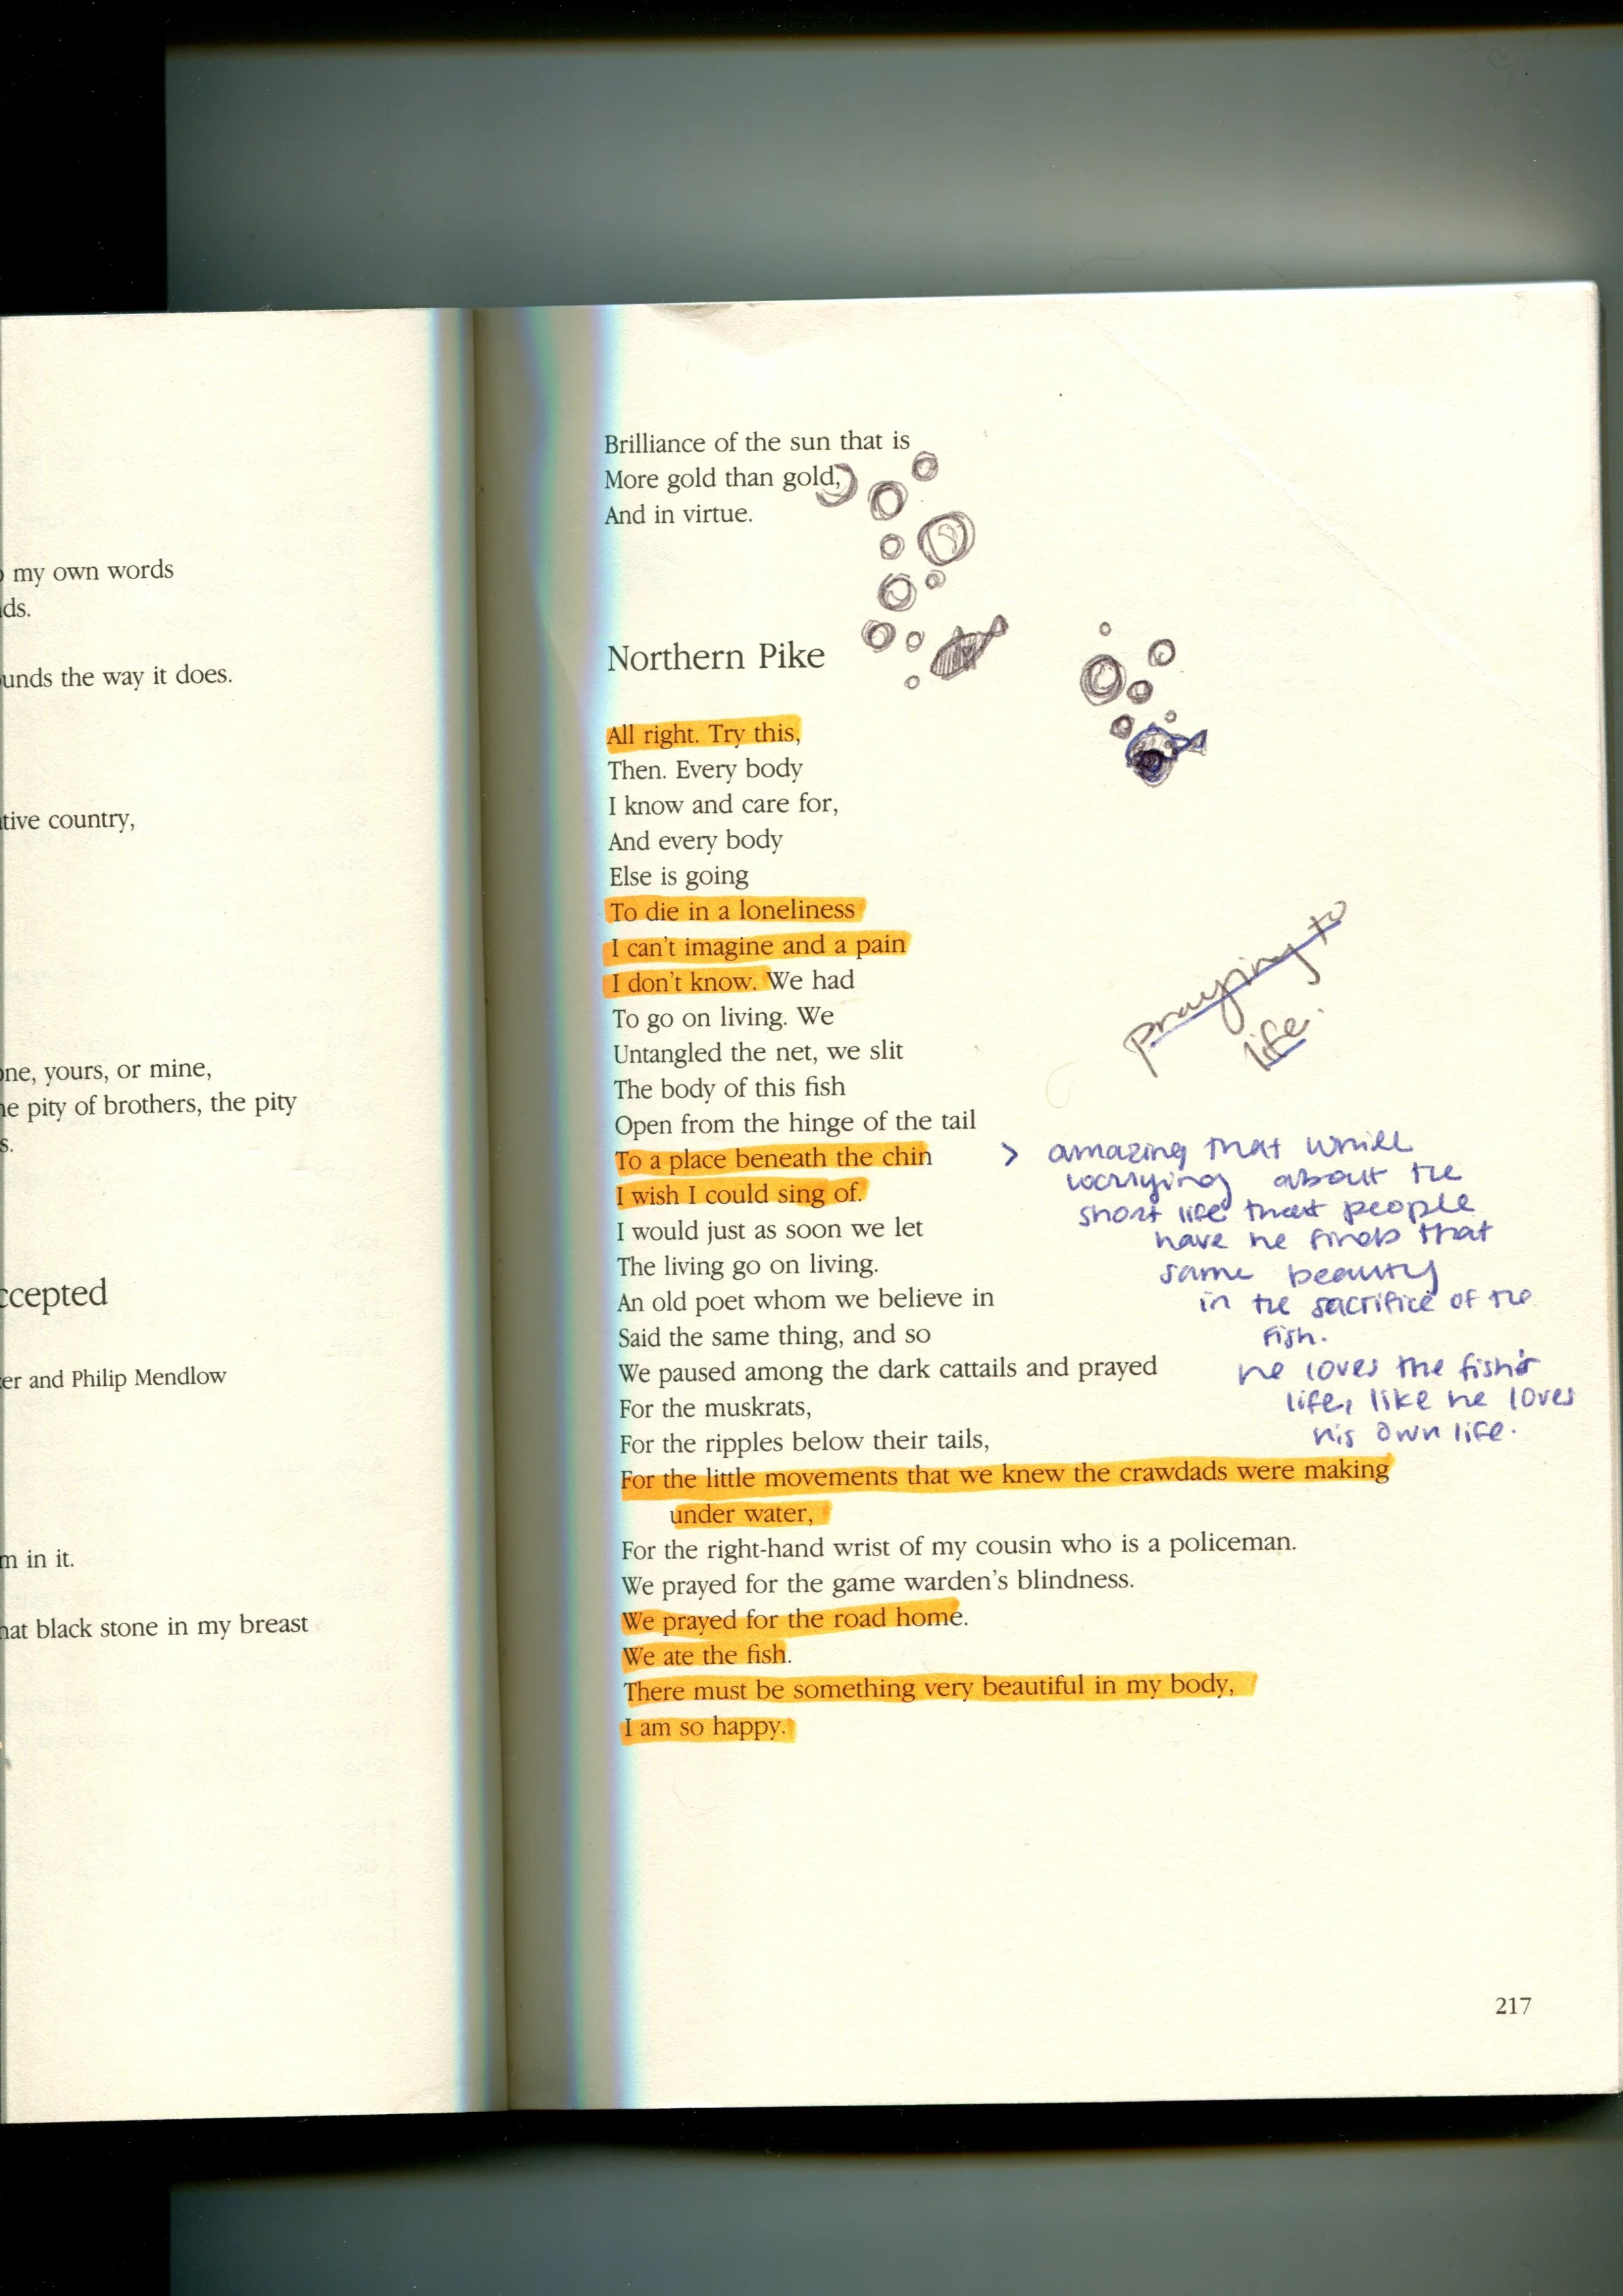 my own words
ds.
unds the way it does.
tive country,
one, yours, or mine,
he pity of brothers, the pity
s.
ccepted
er and Philip Mendlow
m in it.
hat black stone in my breast
Brilliance of the sun that is
More gold than gold,
And in virtue.
Northern Pike
All right. Try this,
Then. Every body
I know and care for,
And every body
Else is going
To die in a loneliness
I can't imagine and a pain
I don't know. We had
To go on living. We
Untangled the net, we slit
The body of this fish
Open from the hinge of the tail
To a place beneath the chin
I wish I could sing of.
I would just as soon we let
The living go on living.
An old poet whom we believe in
Said the same thing, and so
We paused among the dark cattails and prayed
For the muskrats,
For the ripples below their tails,
For the little movements that we knew the crawdads were making
under water,
For the right-hand wrist of my cousin who is a policeman.
We prayed for the game warden's blindness.
We prayed for the road home.
We ate the fish.
There must be something very beautiful in my body,
I am so happy.
praying to
life.
> amazing that while
worrying about the
short life that people
have he finds that
same beauty
in the sacrifice of the
fish.
he loves the fish's
life, like he loves
his own life.
217